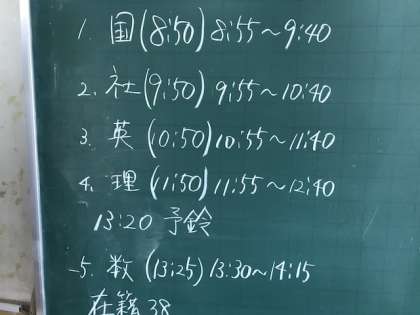 1. 国(8:50) 8:55～9:40
2. 社(9:50) 9:55～10:40
3. 英 (10:50) 10:55～11:40
4. 理 (11:50) 11:55～12:40
13:20 予鈴
5. 数 (13:25) 13:30～14:15
在籍 38